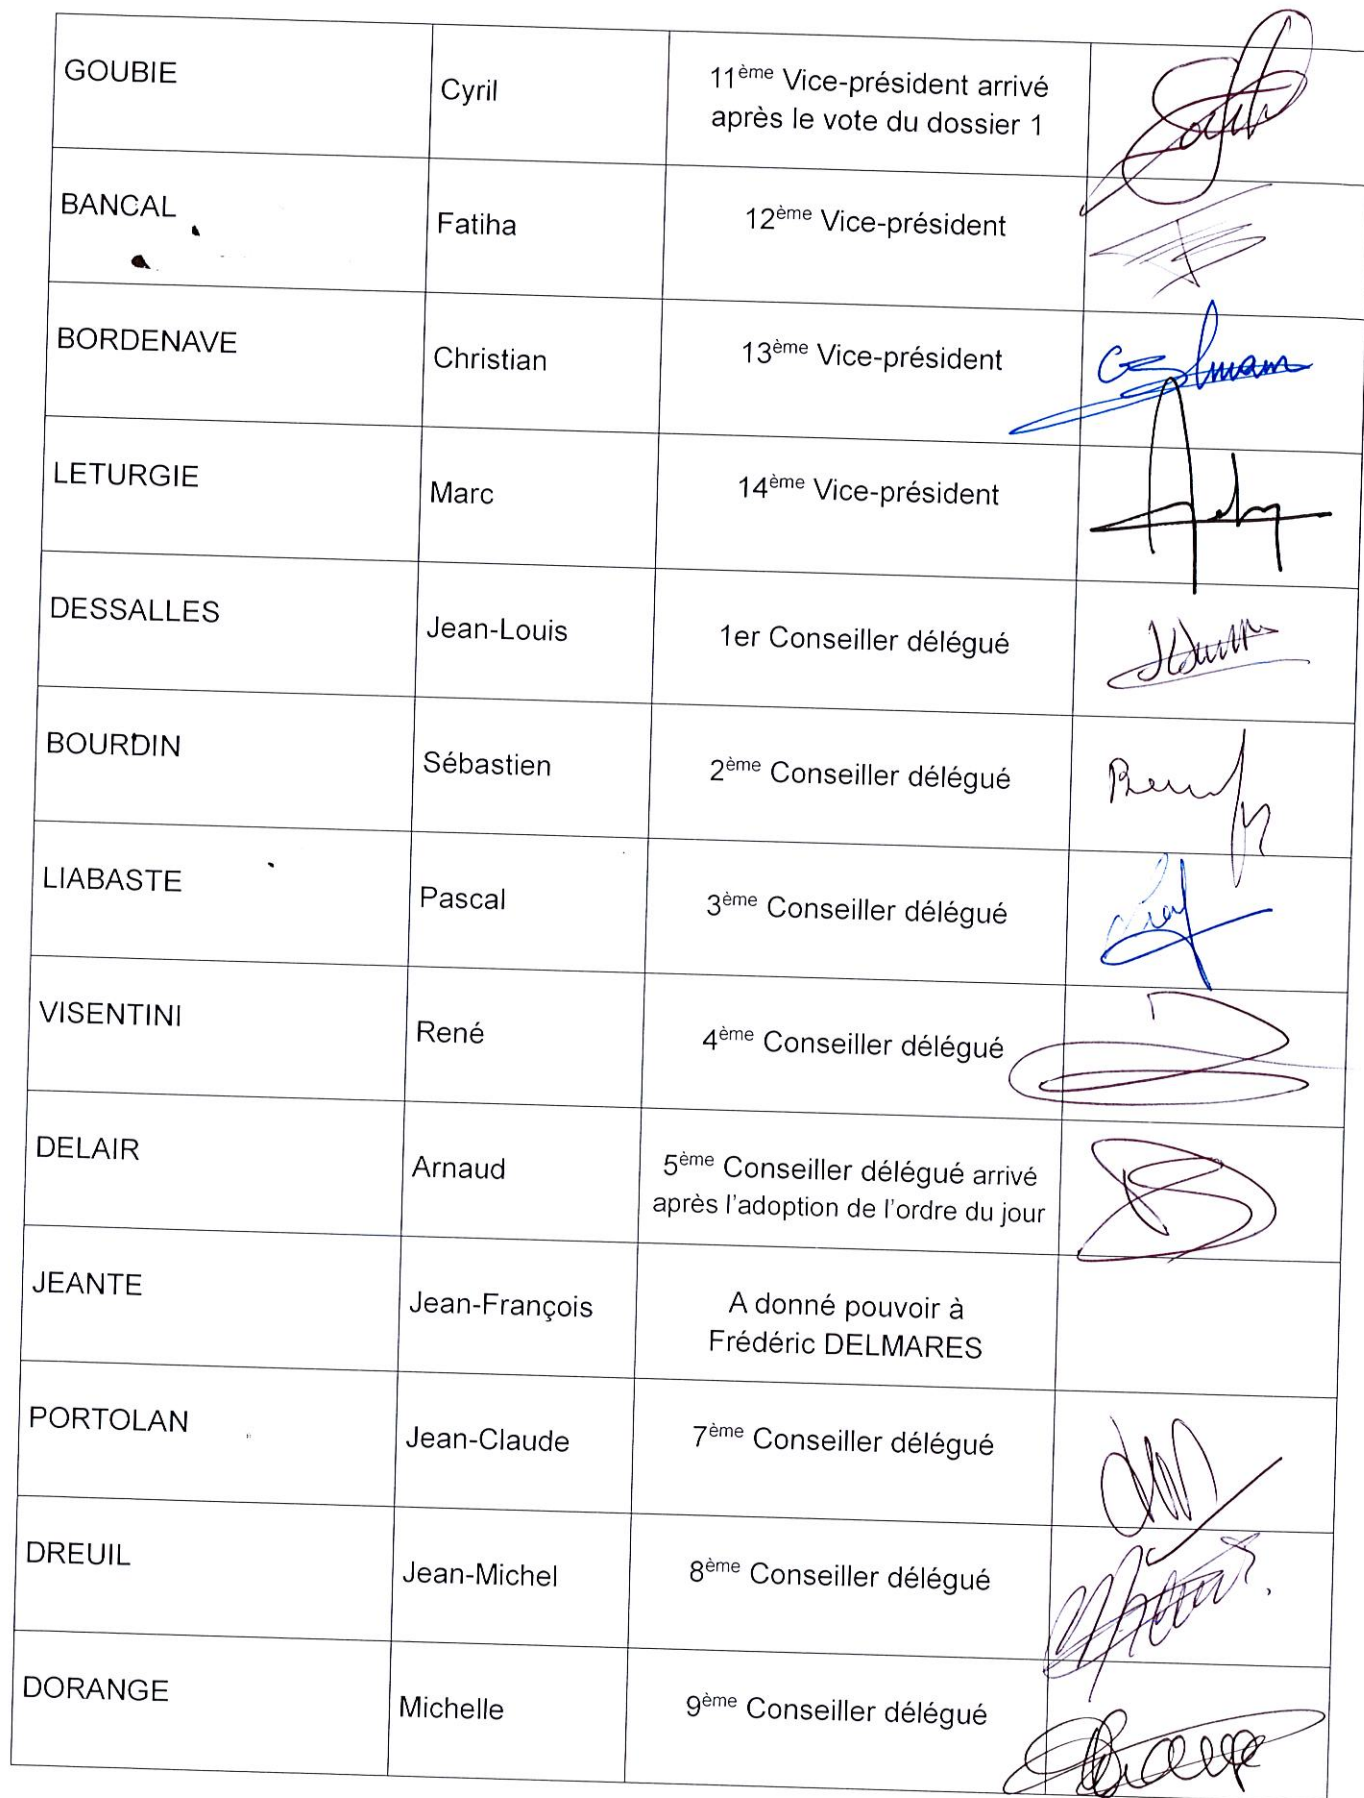 GOUBIE
Cyril
11ème Vice-président arrivé
après le vote du dossier 1
BANCAL
Fatiha
12ème Vice-président
BORDENAVE
Christian
13ème Vice-président
LETURGIE
Marc
14ème Vice-président
DESSALLES
Jean-Louis
1er Conseiller délégué
BOURDIN
Sébastien
2ème Conseiller délégué
LIABASTE
Pascal
3ème Conseiller délégué
VISENTINI
René
4ème Conseiller délégué
DELAIR
Arnaud
5ème Conseiller délégué arrivé
après l'adoption de l'ordre du jour
JEANTE
Jean-François
A donné pouvoir à
Frédéric DELMARES
PORTOLAN
Jean-Claude
7ème Conseiller délégué
DREUIL
Jean-Michel
8ème Conseiller délégué
DORANGE
Michelle
9ème Conseiller délégué